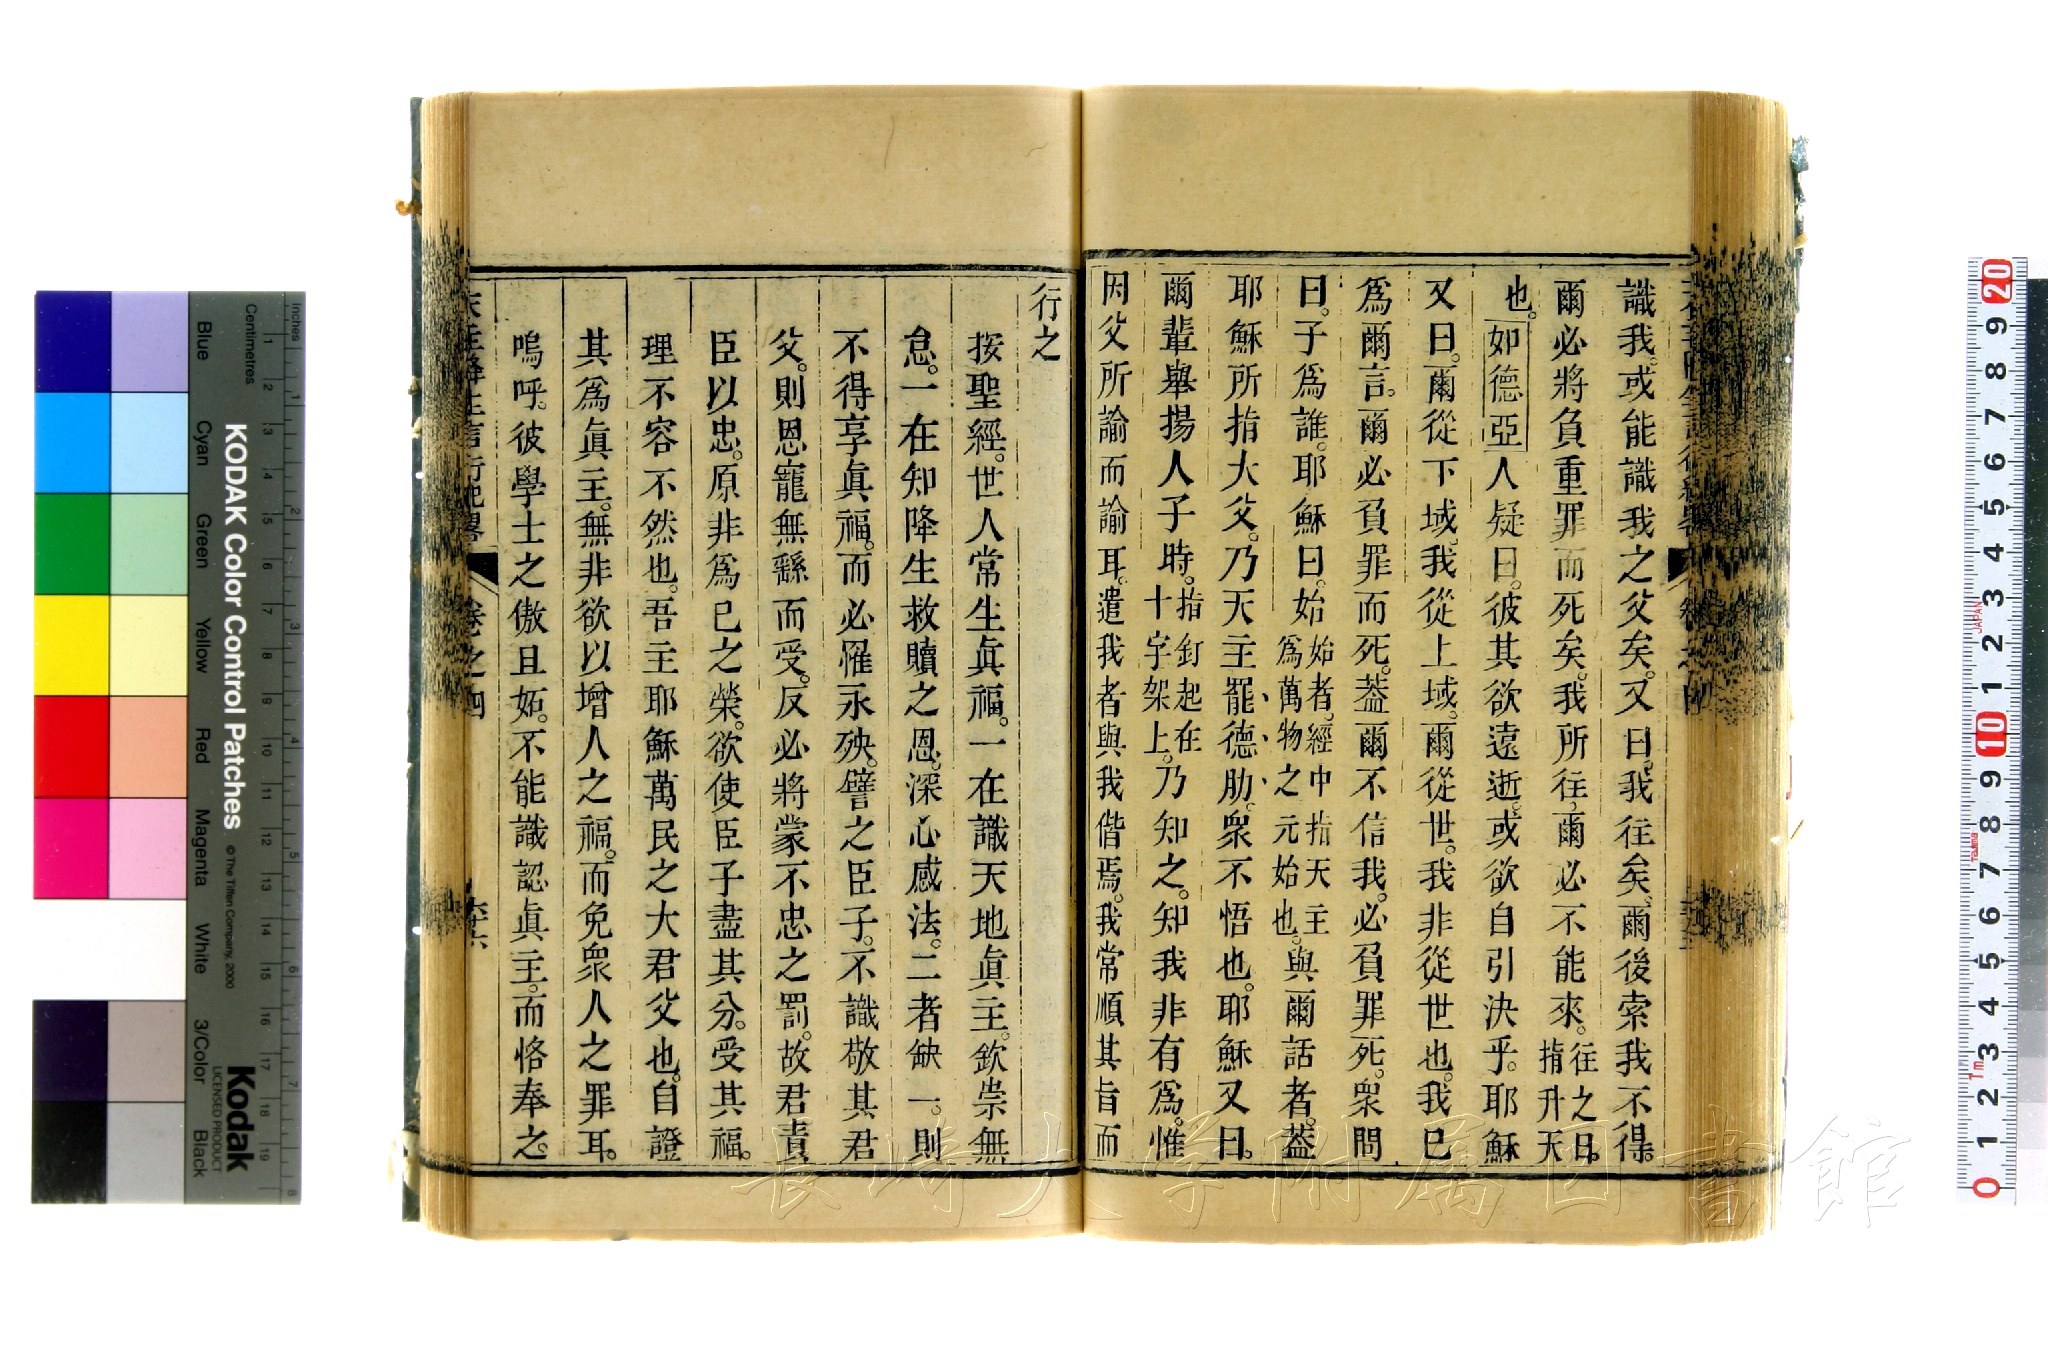 識我。或能識我之父矣。又曰。我往矣。爾後索我不得。
爾必將負重罪而死矣。我所往。爾必不能來。往之日。指升天
也。如德亞人疑曰。彼其欲遠逝。或欲自引決乎。耶穌
又曰。爾從下域。我從上域。爾從世。我非從世也。我已
為爾言。爾必負罪而死。葢爾不信我。必負罪死。衆問
曰。子為誰。耶穌曰。始始者。經中指天主為萬物之元始也。與爾話者。葢
耶穌所指大父。乃天主罷德肋。衆不悟也。耶穌又曰。
爾輩舉揚人子時。指釘起在十字架上。乃知之。知我非有為。惟
因父所諭而諭耳。遣我者與我偕焉。我常順其旨而
行之
按聖經。世人常生眞福。一在識天地眞主。欽崇無
怠。一在知降生救贖之恩。深心感法。二者缺一。則
不得享眞福。而必罹永殃。譬之臣子。不識敬其君
父。則恩寵無繇而受。反必將蒙不忠之罰。故君責
臣以忠。原非為己之榮。欲使臣子盡其分。受其福。
理不容不然也。吾主耶穌萬民之大君父也。自證
其為眞主。無非欲以增人之福。而免衆人之罪耳。
嗚呼。彼學士之傲且妬。不能識認眞主。而恪奉之。
天主降生言行紀畧
卷之四
六
KODAK Color Control Patches
© The Tiffen Company, 2000
Kodak
LICENSED PRODUCT
Inches
Centimetres
Blue
Cyan
Green
Yellow
Red
Magenta
White
3/Color
Black
長崎大学附属図書館
JAPAN